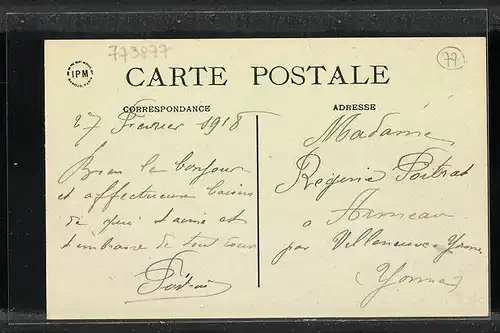 773877
77
IPM
CARTE POSTALE
CORRESPONDANCE
ADRESSE
27 Fevrier 1918
Bien le bonjour
et affectueux baisers
de qui t'aime et
t'embrasse de tout cœur
Madame
Regine Poitrat
a Armeau
par Villeneuve Yonne
(Yonne)